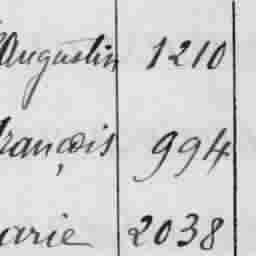 Augustin 1210
rançois 994
arie 2038